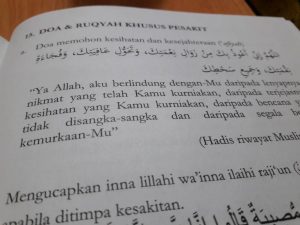 15. DOA & RUQYAH KHUSUS PESAKIT
Doa memohon kesihatan dan kesejahteraan
اللَّهُمَّ إِنِّي أَعُوذُ بِكَ مِنْ زَوَالِ نِعْمَتِكَ، وَتَحَوُّلِ عَافِيَتِكَ، وَفُجَاءَةِ
نِقْمَتِكَ، وَجَمِيعِ سَخَطِكَ
"Ya Allah, aku berlindung dengan-Mu daripada lenyapnya
nikmat yang telah Kamu kurniakan, daripada
kesihatan yang Kamu kurniakan, daripada bencana
tidak disangka-sangka dan daripada segala
kemurkaan-Mu"
(Hadis riwayat Muslim
Mengucapkan inna lillahi wa'inna ilaihi raji'un (
apabila ditimpa kesakitan.
مُصِيبَةٌ قَالُوا